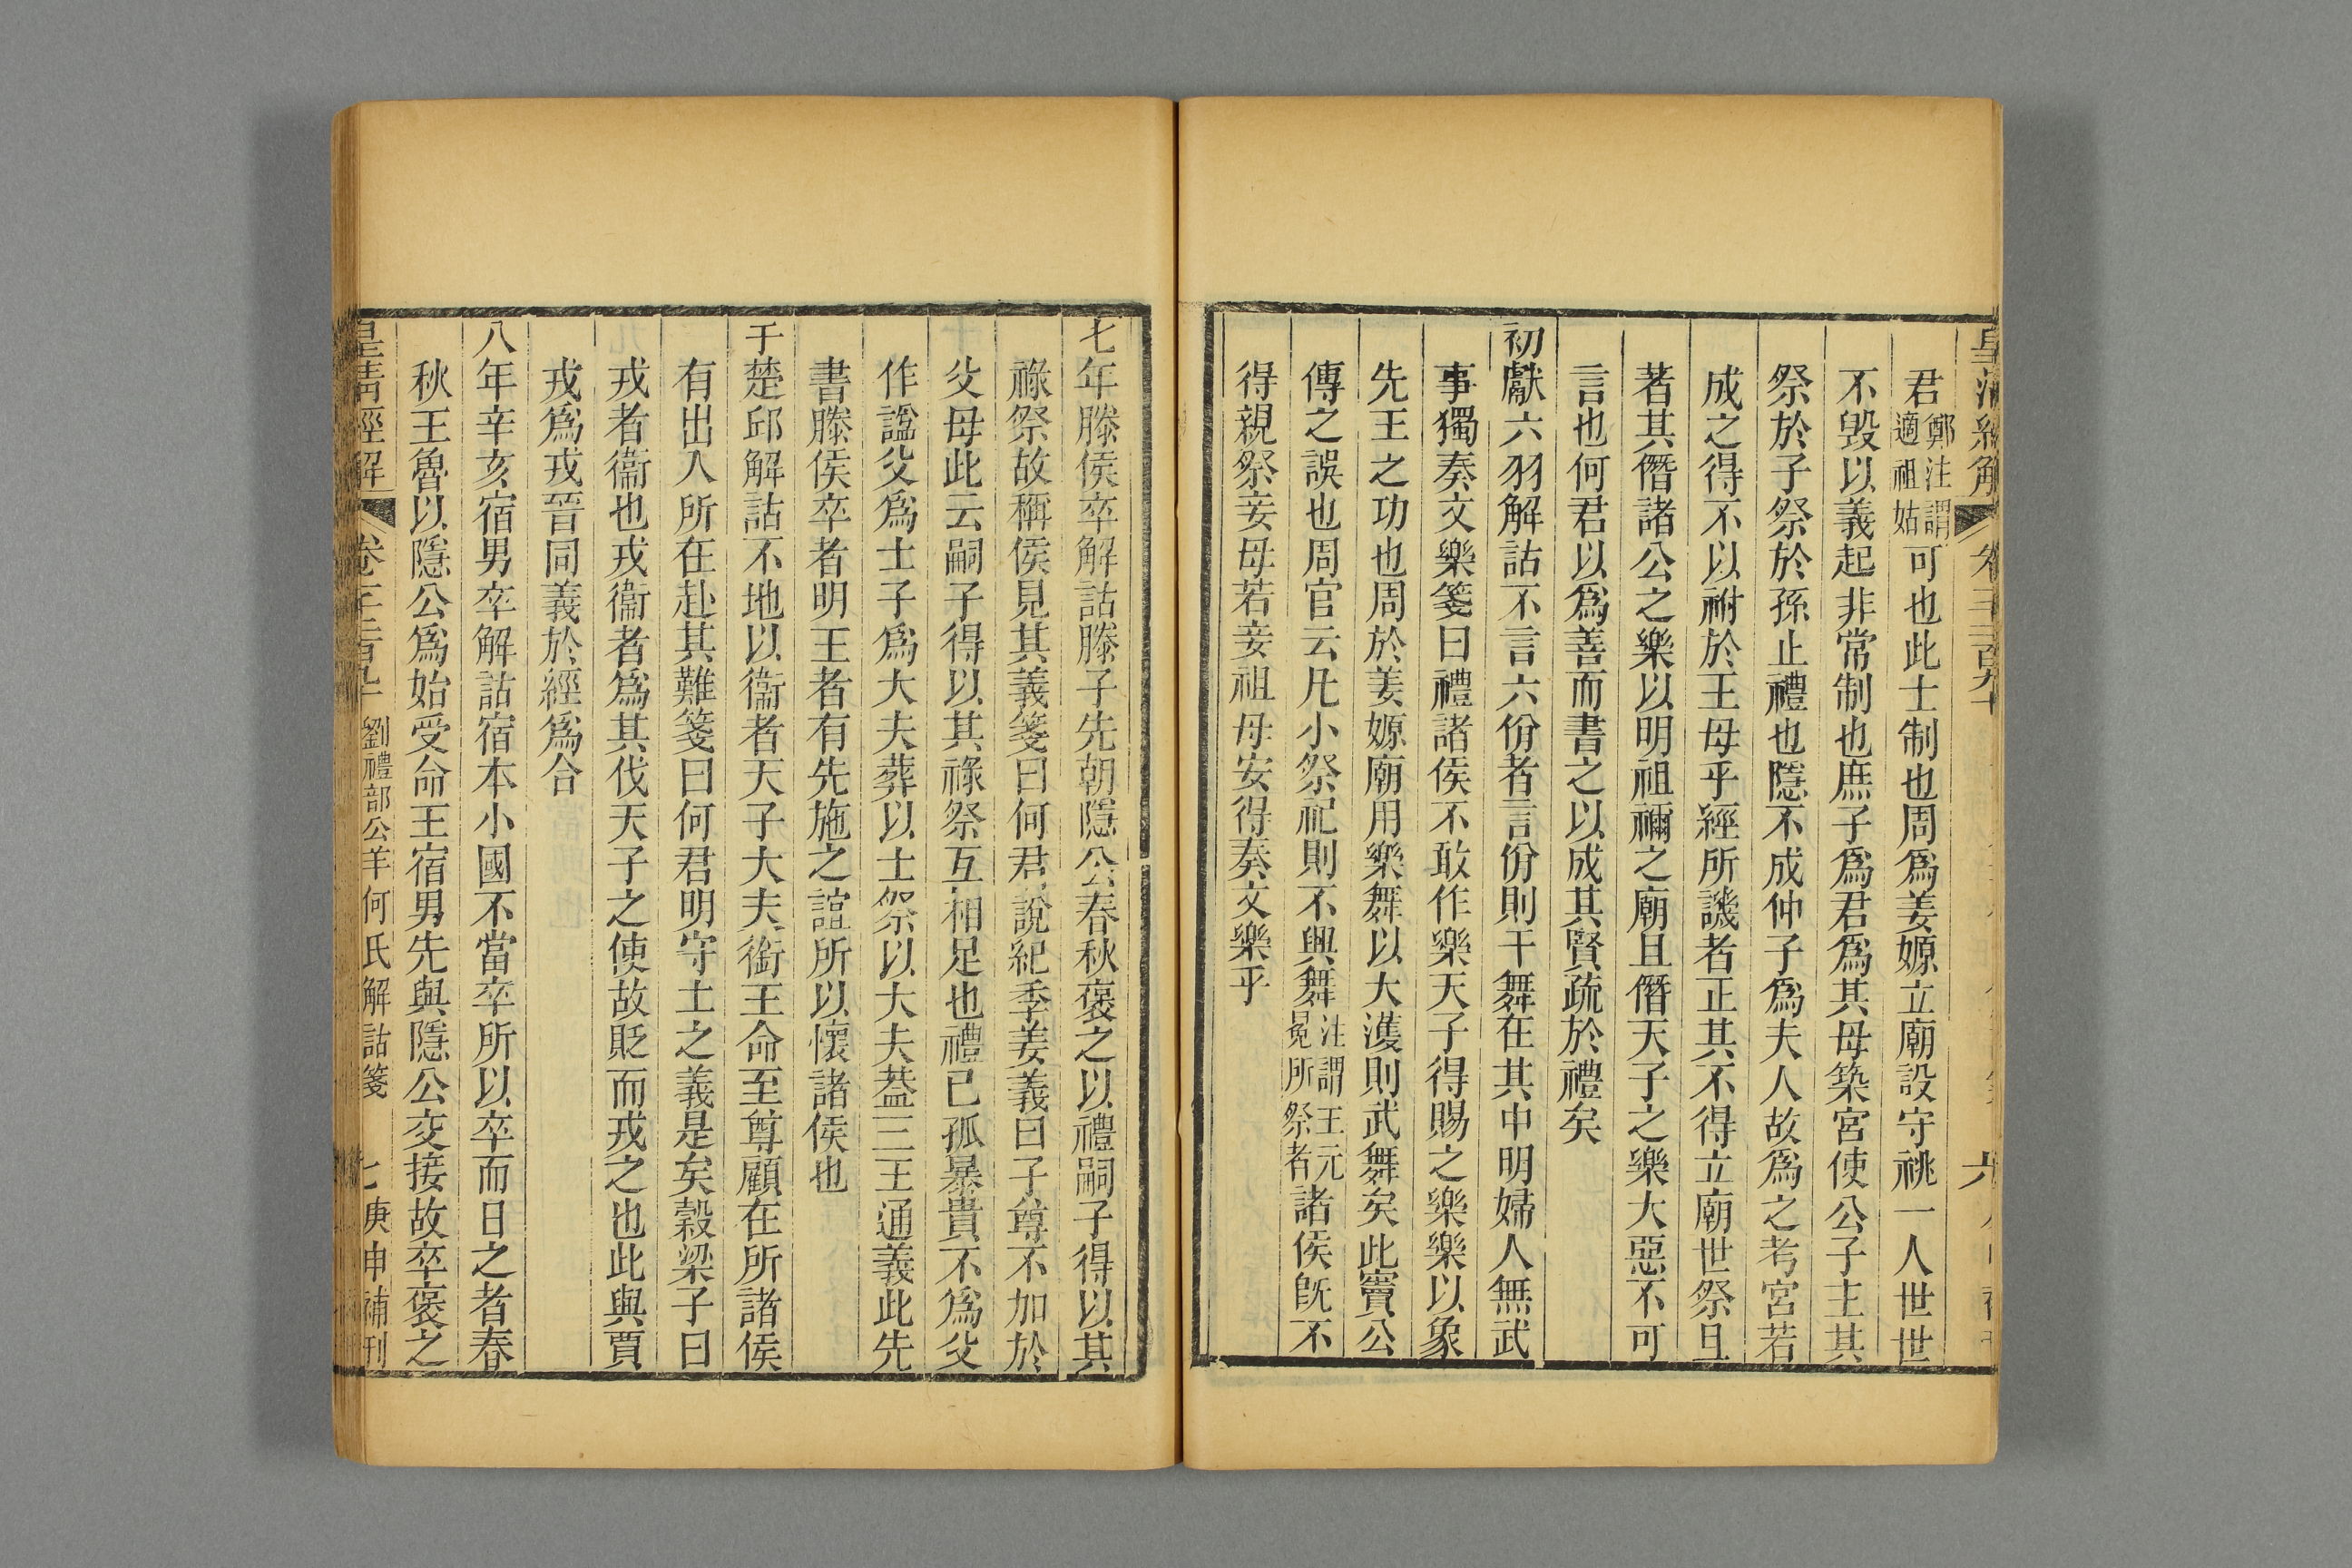 君鄭注謂適祖姑可也此士制也周爲姜嫄立廟設守祧一人世世
不毀以義起非常制也庶子爲君爲其母築宮使公子主其
祭於子祭於孫止禮也隱不成仲子爲夫人故爲之考宮若
成之得不以祔於王母乎經所譏者正其不得立廟世祭且
著其僭諸公之樂以明祖禰之廟且僭天子之樂大惡不可
言也何君以爲善而書之以成其賢疏於禮矣
初獻六羽解詁不言六佾者言佾則干舞在其中明婦人無武
事獨奏文樂箋曰禮諸侯不敢作樂天子得賜之樂樂以象
先王之功也周於姜嫄廟用樂舞以大濩則武舞矣此竇公
傳之誤也周官云凡小祭祀則不興舞注謂王元冕所祭者諸侯旣不
得親祭妾母若妾祖母安得奏文樂乎
七年滕侯卒解詁滕子先朝隱公春秋襃之以禮嗣子得以其
祿祭故稱侯見其義箋曰何君說紀季姜義曰子尊不加於
父母此云嗣子得以其祿祭互相足也禮已孤暴貴不爲父
作諡父爲士子爲大夫葬以士祭以大夫葢三王通義此先
書滕侯卒者明王者有先施之誼所以懷諸侯也
于楚邱解詁不地以衞者天子大夫銜王命至尊顧在所諸侯
有出入所在赴其難箋曰何君明守土之義是矣穀梁子曰
戎者衞也戎衞者爲其伐天子之使故貶而戎之也此與賈
戎爲戎晉同義於經爲合
八年辛亥宿男卒解詁宿本小國不當卒所以卒而日之者春
秋王魯以隱公爲始受命王宿男先與隱公交接故卒襃之
皇清經解 劉禮部公羊何氏解詁箋 七 庚申補刊